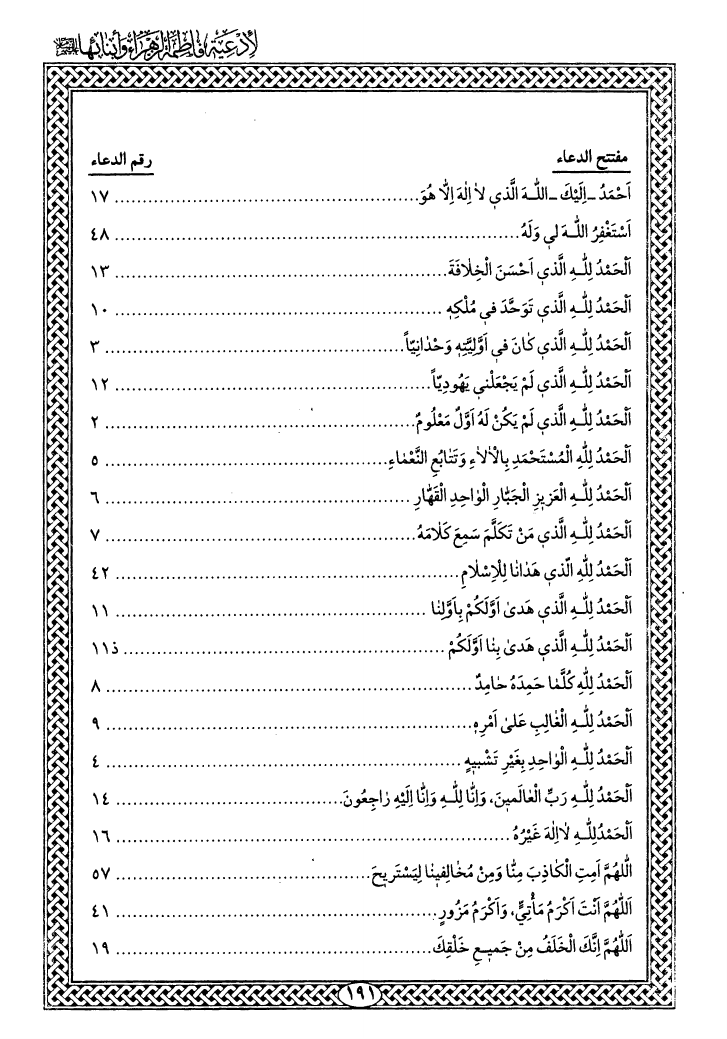 لأدعية فاطمة الزهراء وأبنائها
مفتتح الدعاء رقم الدعاء
اَحْمَدُ ـ اِلَيْكَ ـ اللّٰـهَ الَّذي لاٰ اِلٰهَ اِلّاٰ هُوَ ........ ١٧
اَسْتَغْفِرُ اللّٰـهَ لي وَلَهُ ........ ٤٨
اَلْحَمْدُ لِلّٰـهِ الَّذي اَحْسَنَ الْخِلاٰفَةَ ........ ١٣
اَلْحَمْدُ لِلّٰـهِ الَّذي تَوَحَّدَ في مُلْكِهِ ........ ١٠
اَلْحَمْدُ لِلّٰـهِ الَّذي كٰانَ في اَوَّلِيَّتِهِ وَحْدٰانِيّاً ........ ٣
اَلْحَمْدُ لِلّٰـهِ الَّذي لَمْ يَجْعَلْني يَهُودِيّاً ........ ١٢
اَلْحَمْدُ لِلّٰـهِ الَّذي لَمْ يَكُنْ لَهُ اَوَّلٌ مَعْلُومٌ ........ ٢
اَلْحَمْدُ لِلّٰهِ الْمُسْتَحْمَدِ بِالْاٰلاٰءِ وَتَتٰابُعِ النَّعْمٰاءِ ........ ٥
اَلْحَمْدُ لِلّٰـهِ الْعَزيزِ الْجَبّٰارِ الْوٰاحِدِ الْقَهّٰارِ ........ ٦
اَلْحَمْدُ لِلّٰـهِ الَّذي مَنْ تَكَلَّمَ سَمِعَ كَلاٰمَهُ ........ ٧
اَلْحَمْدُ لِلّٰهِ الَّذي هَدٰانٰا لِلْاِسْلاٰمِ ........ ٤٢
اَلْحَمْدُ لِلّٰـهِ الَّذي هَدىٰ اَوَّلَكُمْ بِاَوَّلِنٰا ........ ١١
اَلْحَمْدُ لِلّٰـهِ الَّذي هَدىٰ بِنٰا اَوَّلَكُمْ ........ ذ١١
اَلْحَمْدُ لِلّٰهِ كُلَّمٰا حَمِدَهُ حٰامِدٌ ........ ٨
اَلْحَمْدُ لِلّٰـهِ الْغٰالِبِ عَلىٰ اَمْرِهِ ........ ٩
اَلْحَمْدُ لِلّٰـهِ الْوٰاحِدِ بِغَيْرِ تَشْبيهٍ ........ ٤
اَلْحَمْدُ لِلّٰـهِ رَبِّ الْعٰالَمينَ، وَاِنّٰا لِلّٰـهِ وَاِنّٰا اِلَيْهِ رٰاجِعُونَ ........ ١٤
اَلْحَمْدُ لِلّٰـهِ لاٰاِلٰهَ غَيْرُهُ ........ ١٦
اَللّٰهُمَّ اَمِتِ الْكٰاذِبَ مِنّٰا وَمِنْ مُخٰالِفينٰا لِيَسْتَريحَ ........ ٥٧
اَللّٰهُمَّ اَنْتَ اَكْرَمُ مَأْتِيٍّ، وَاَكْرَمُ مَزُورٍ ........ ٤١
اَللّٰهُمَّ اِنَّكَ الْخَلَفُ مِنْ جَميعِ خَلْقِكَ ........ ١٩
١٩١